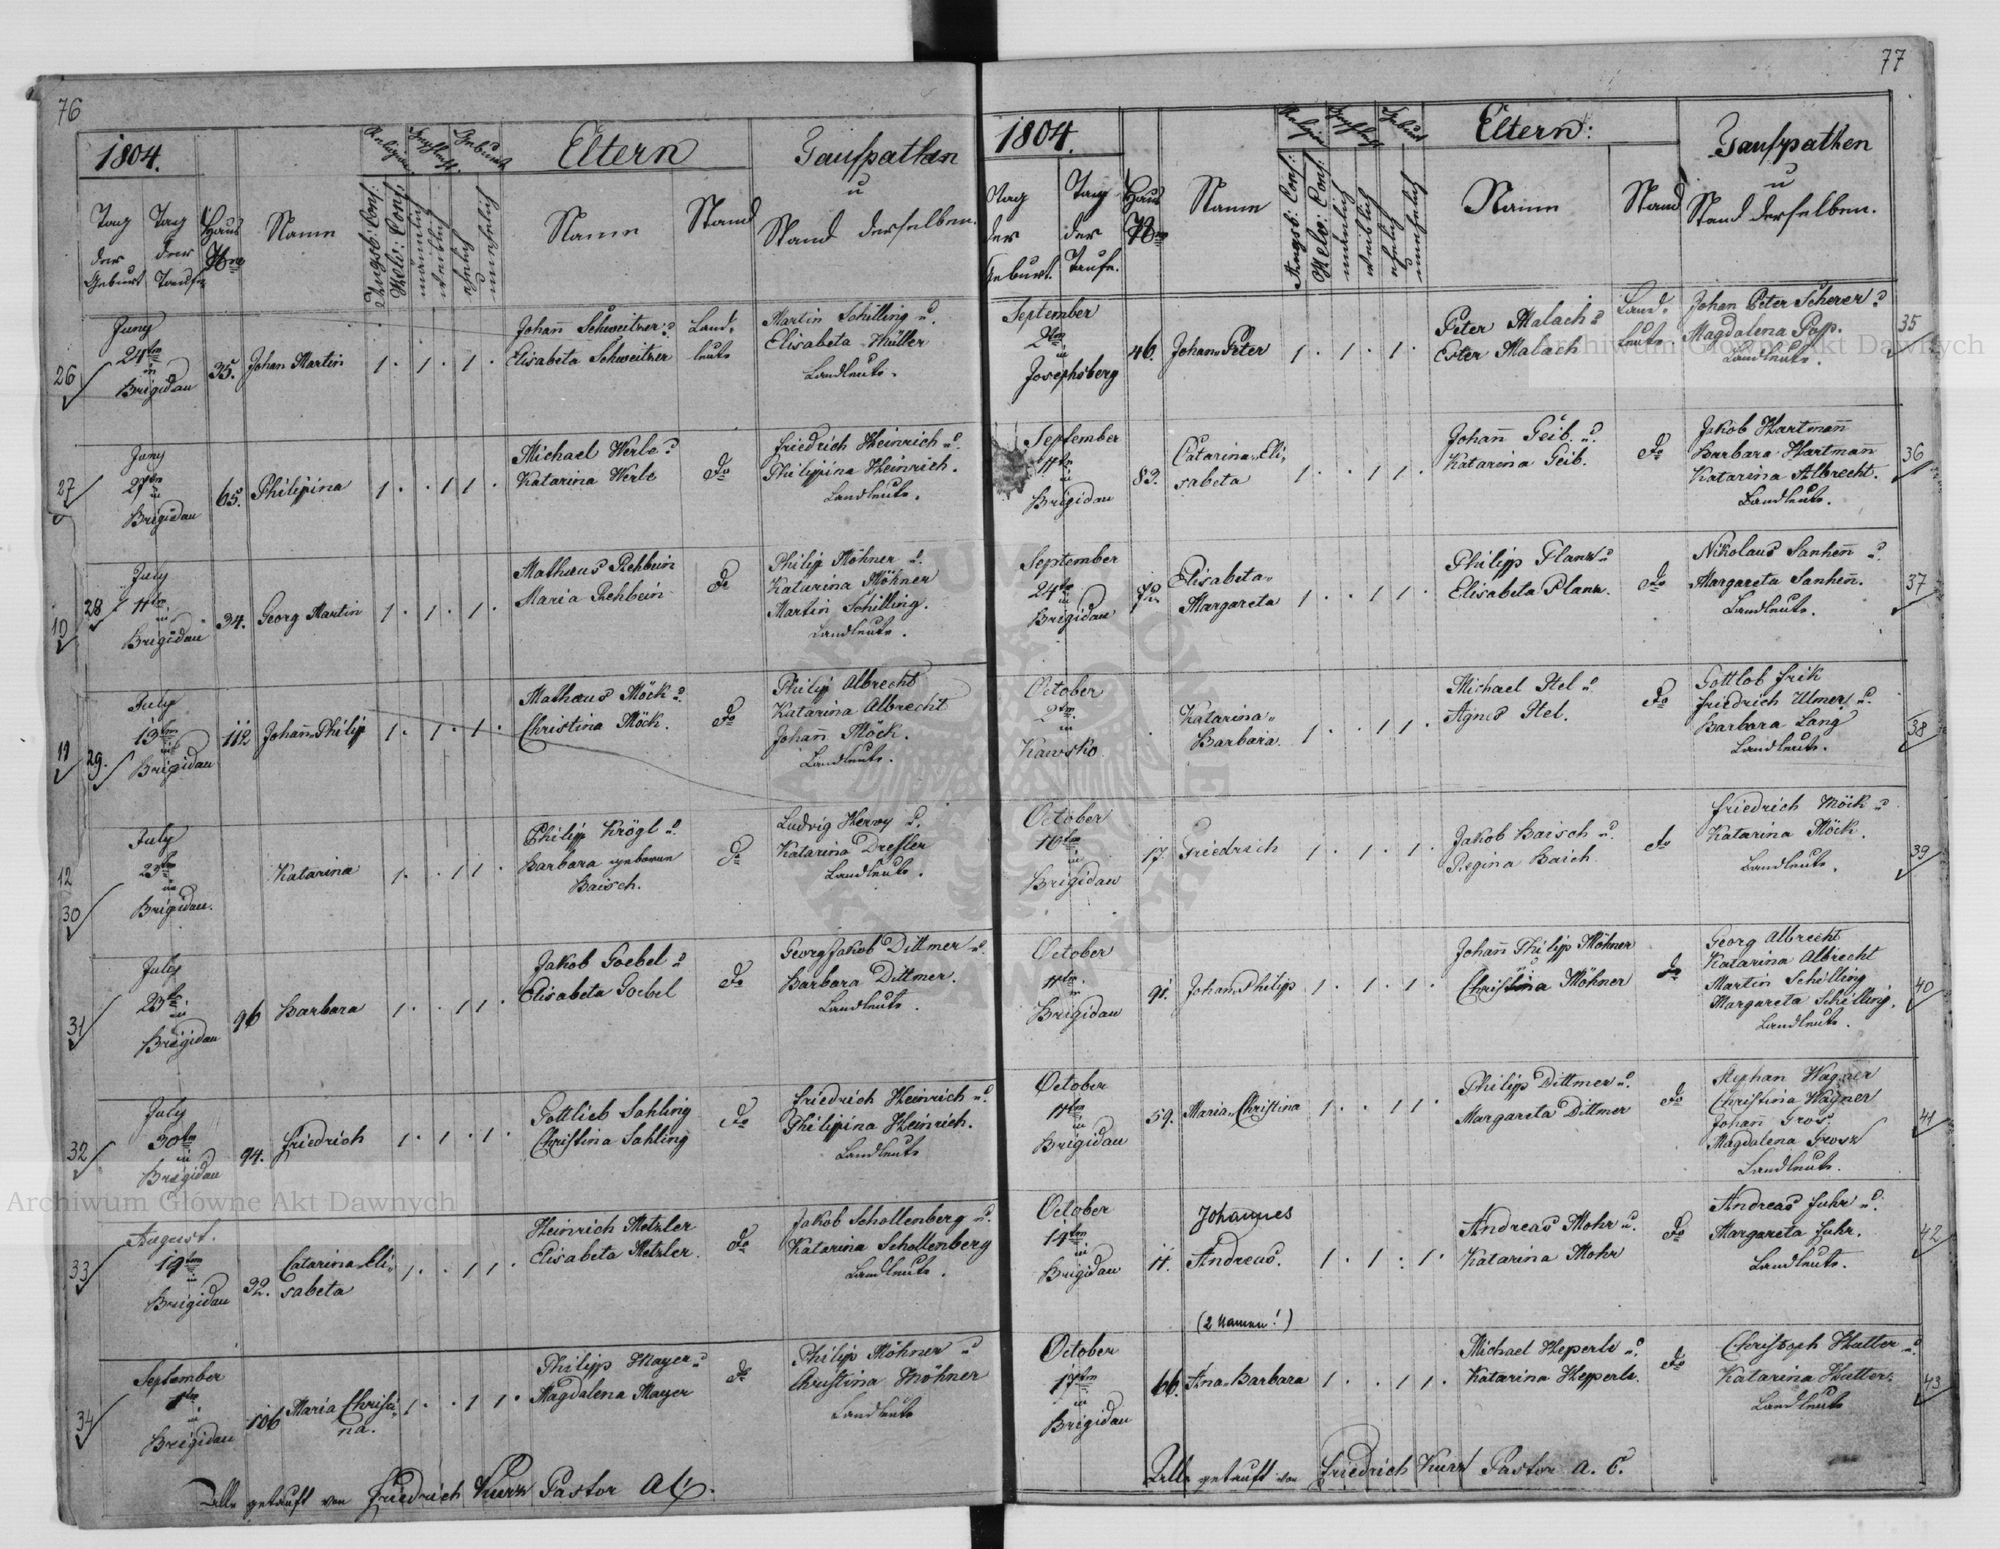 76
1804.
Religion
Geschlecht
Geburt
Eltern
Taufpathen
u
Stand derselben.
Tag der Geburt
Tag der Taufe
Haus Nro
Name
Augsb: Conf:
Helv: Conf:
männlich
weiblich
ehelich
unehelich
Name
Stand
26
Juny
24ten
in
Brigidau
35.
Johan Martin
1 . 1 . 1 .
Johann Schweitzer u
Elisabeta Schweitzer
Land-
leute
Martin Schilling u.
Elisabeta Müller
Landleute.
27
Juny
27ten
in
Brigidau
65.
Philipina
1 . . 1 1 .
Michael Werle u
Katarina Werle
do
Friedrich Heinrich u.
Philippina Heinrich.
Landleute.
10
28
July
11ten
in
Brigidau
34.
Georg Martin
1 . 1 . 1 .
Matheus Rehbein
Maria Rehbein
do
Philip Möhner u.
Katarina Möhner
Martin Schilling.
Landleute.
11
29.
July
13ten
in
Brigidau
112
Johann Philip
1 . 1 . 1 .
Matheus Möck u
Christina Möck.
do
Philip Albrecht
Katarina Albrecht
Johann Möck.
Landleute.
12
30
July
23ten
in
Brigidau.
Katarina
1 . . 1 1 .
Philip Krögl u.
Barbara geborene
Baisch.
do
Ludwig Hervy u.
Katarina Dresler
Landleute.
31
July
23ten
in
Brigidau
96
Barbara
1 . . 1 1 .
Jakob Goebel u
Elisabeta Goebel
do
Georg Jakob Dittmer u.
Barbara Dittmer.
Landleute.
32
July
30ten
in
Brigidau
94.
Friedrich
1 . 1 . 1 .
Gottlieb Sahling
Christina Sahling
do
Friedrich Heinrich u.
Philipina Heinrich.
Landleute
33
August.
19ten
in
Brigidau
32.
Catarina Eli-
sabeta
1 . . 1 1 .
Heinrich Metzler
Elisabeta Metzler.
do
Jakob Schollenberg u.
Katarina Schollenberg
Landleute.
34
September
1ten
in
Brigidau
106
Maria Christi-
na.
1 . . 1 1 .
Philipp Mayer u
Magdalena Mayer
do
Philip Möhner u
Christina Möhner
Landleute
Alle getauft von Friedrich Kurz Pastor A C.
77
1804.
Religion
Geschlecht
Geburt
Eltern:
Taufpathen
u
Stand derselben.
Tag der Geburt.
Tag der Taufe.
Haus Nro
Name
Augsb: Conf:
Helv: Conf:
männlich
weiblich
ehelich
unehelich
Name
Stand
September
2ten
in
Josephsberg
46.
Johan Peter
1 . 1 . 1 .
Peter Malach u
Ester Malach
Land-
leute
Johan Peter Scherer u
Magdalena Popp.
Landleute.
35
September
11ten
in
Brigidau
83.
Catarina Eli-
sabeta
1 . . 1 1 .
Johann Geib. u.
Katarina Geib.
do
Jakob Hartmann
Barbara Hartmann
Katarina Albrecht.
Landleute.
36
September
24ten
in
Brigidau
Elisabeta
Margareta
1 . . 1 1 .
Philipp Planz u
Elisabeta Planz.
do
Nikolaus Sanhen u
Margareta Sanhen.
Landleute.
37
October
2ten
in
Kawsko
Katarina
Barbara.
1 . . 1 1 .
Michael Stel u
Agnes Stel.
do
Gottlob Frik
Friedrich Ulmer u.
Barbara Lang
Landleute.
38
October
10ten
in
Brigidau
17.
Friedrich
1 . 1 . 1 .
Jakob Baisch u.
Regina Baich
do
Friedrich Möck u
Katarina Möck.
Landleute.
39
October
11ten
in
Brigidau
91.
Johan Philip
1 . 1 . 1 .
Johann Philipp Möhner
Christina Möhner
do
Georg Albrecht
Katarina Albrecht
Martin Schilling
Margareta Schilling.
Landleute.
40
October
11ten
in
Brigidau
59.
Maria Christina
1 . . 1 1 .
Philipp Dittmer u.
Margareta Dittmer
do
Stephan Wagner
Christina Wagner
Johan Gros.
Magdalena Grosz
Landleute.
41
October
14ten
in
Brigidau
11.
Johannes
Andreas.
(2 Namen!)
1 . 1 . 1 .
Andreas Mohr u.
Katarina Mohr
do
Andreas Fuhr u.
Margareta Fuhr.
Landleute.
42
October
17ten
in
Brigidau
66.
Ana Barbara
1 . . 1 1 .
Michael Hepperle u.
Katarina Hepperle.
do
Christoph Hutter u.
Katarina Hutter.
Landleute
43
Alle getauft von Friedrich Kurz Pastor A. C.
Archiwum Główne Akt Dawnych
Archiwum Główne Akt Dawnych